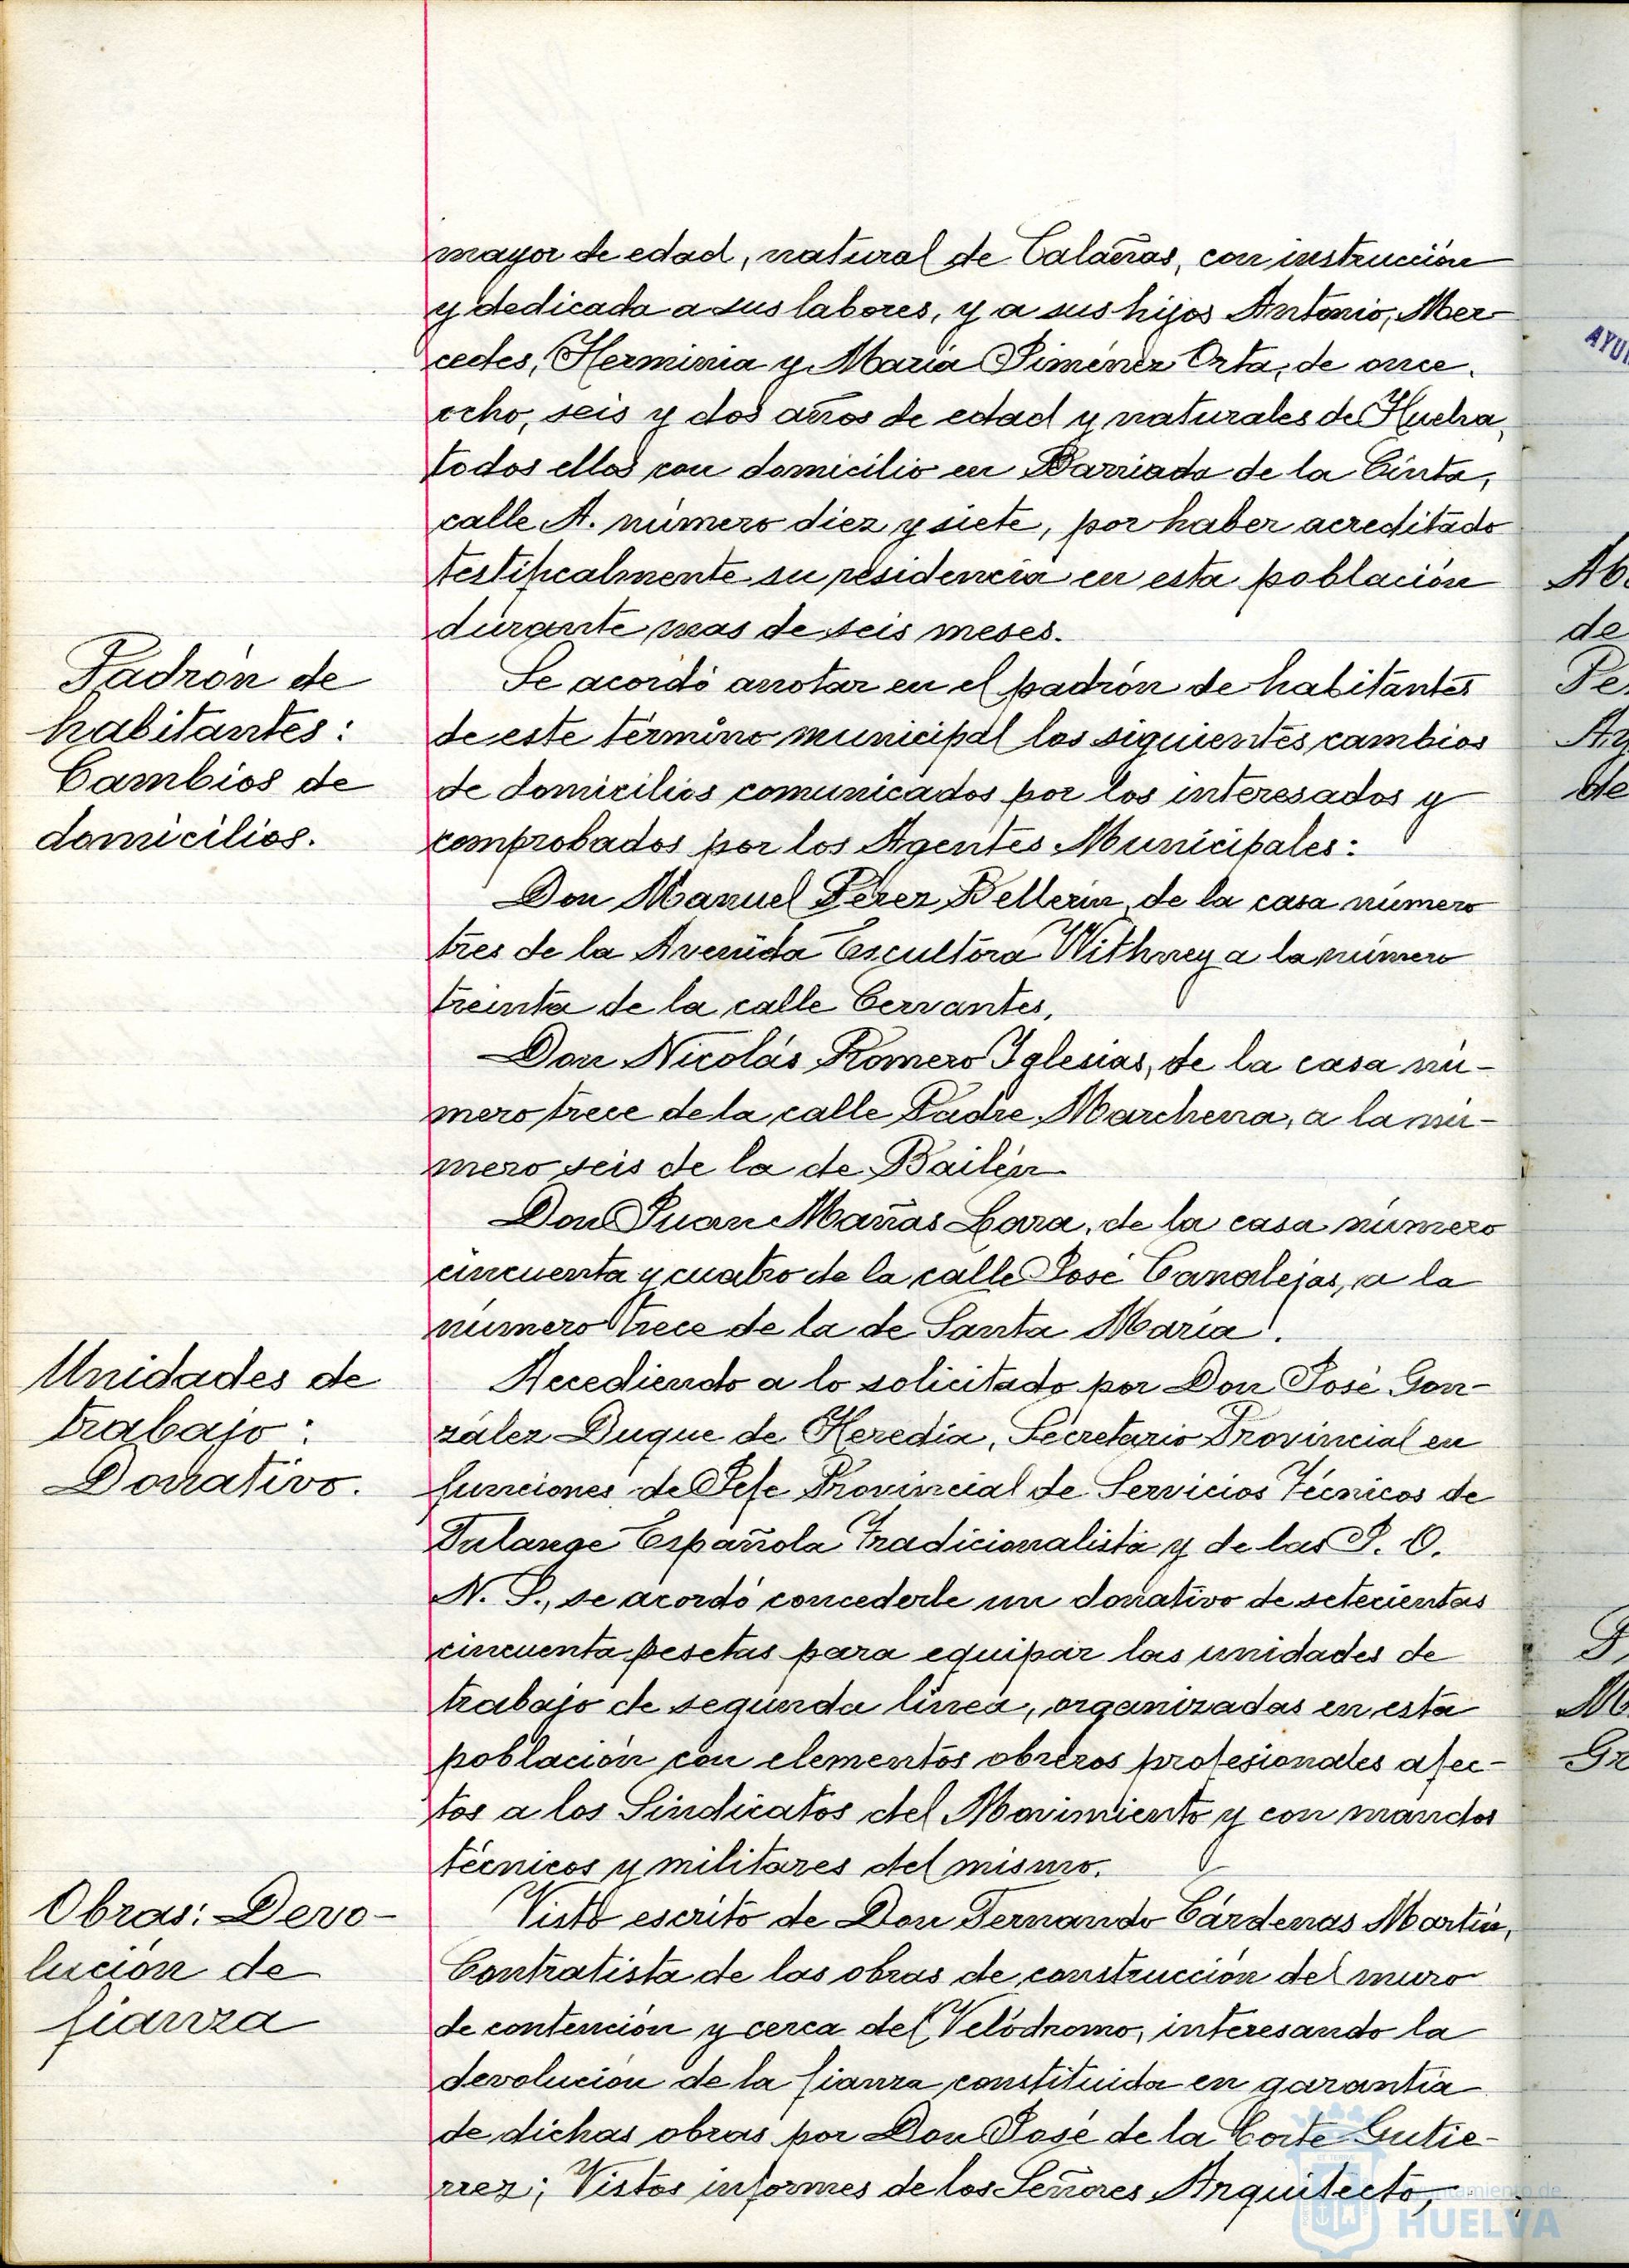 mayor de edad, natural de Calañas, con instrucción
y dedicada a sus labores, y a sus hijos Antonio, Mer-
cedes, Herminia y María Jiménez Orta, de once,
ocho, seis y dos años de edad y naturales de Huelva,
todos ellos con domicilio en Barriada de la Cinta,
calle A. número diez y siete, por haber acreditado
testificalmente su residencia en esta población
durante mas de seis meses.
Padrón de
habitantes:
Cambios de
domicilios.
Se acordó anotar en el padrón de habitantes
de este término municipal los siguientes cambios
de domicilios comunicados por los interesados y
comprobados por los Agentes Municipales:
Don Manuel Pérez Bellerin, de la casa número
tres de la Avenida Escultora Withney a la número
treinta de la calle Cervantes.
Don Nicolás Romero Iglesias, de la casa nú-
mero trece de la calle Padre Marchena, a la nú-
mero seis de la de Bailén
Don Juan Mañas Lara, de la casa número
cincuenta y cuatro de la calle José Canalejas, a la
número trece de la de Santa María.
Unidades de
trabajo:
Donativo.
Accediendo a lo solicitado por Don José Gon-
zález Duque de Heredia, Secretario Provincial en
funciones de Jefe Provincial de Servicios Técnicos de
Falange Española Tradicionalista y de las J. O.
N. S., se acordó concederle un donativo de setecientas
cincuenta pesetas para equipar las unidades de
trabajo de segunda línea, organizadas en esta
población con elementos obreros profesionales afec-
tos a los Sindicatos del Movimiento y con mandos
técnicos y militares del mismo.
Obras: Devo-
lución de
fianza
Visto escrito de Don Fernando Cárdenas Martín,
Contratista de las obras de construcción del muro
de contención y cerca del Velódromo, interesando la
devolución de la fianza constituida en garantía
de dichas obras por Don José de la Corte Gutie-
rrez; Vistos informes de los Señores Arquitecto,
Ayuntamiento de
HUELVA
AYU
Ab
de
Pe
de
M
Gr